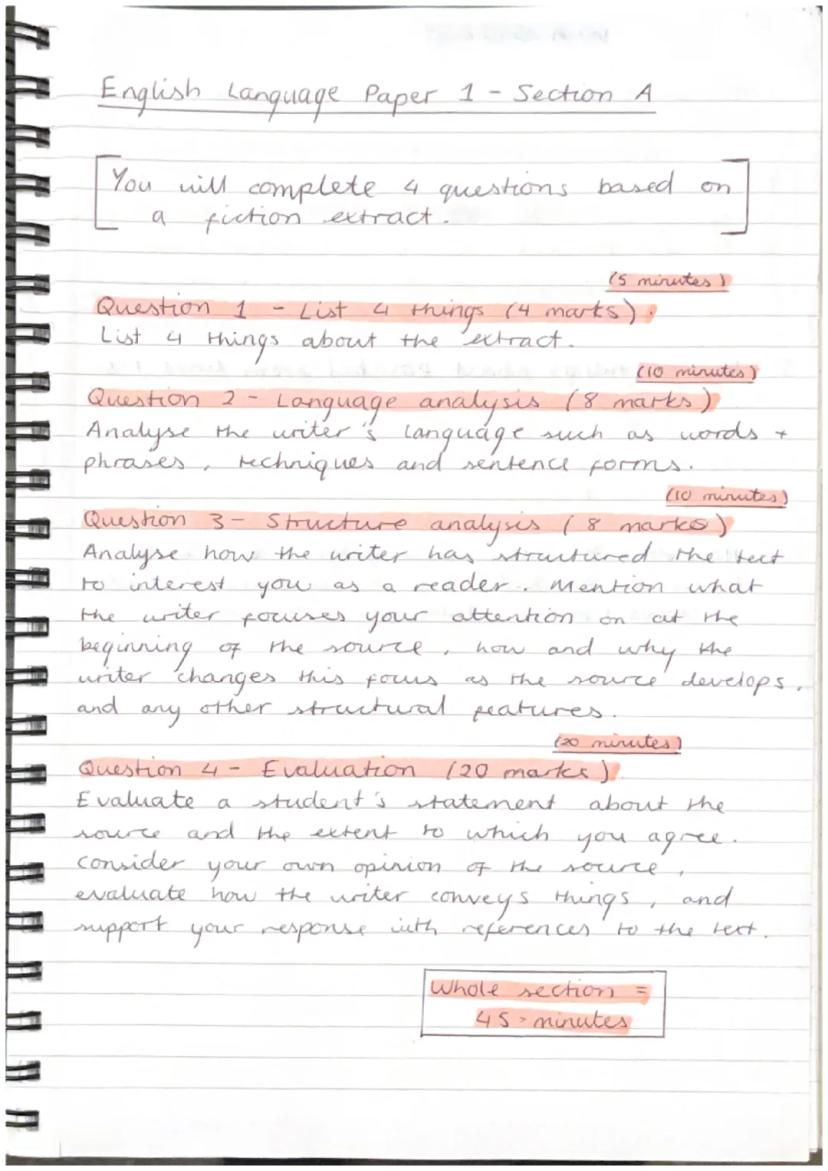 English Language Paper 1 - Section A
You will complete 4 questions based on
a fiction extract.
(5 minutes)
Question 1 - List 4 things (4 marks).
List 4 things about the extract.
(10 minutes)
Question 2 - Language analysis (8 marks)
Analyse the writer's language such as words +
phrases, techniques and sentence forms.
(10 minutes)
Question 3 - Structure analysis (8 marks)
Analyse how the writer has structured the text
to interest you as a reader. Mention what
the writer focuses your attention on at the
beginning of the source, how and why the
writer changes this focus as the source develops,
and any other structural features.
(20 minutes)
Question 4 - Evaluation (20 marks)
Evaluate a student's statement about the
source and the extent to which you agree.
Consider your own opinion of the source,
evaluate how the writer conveys things, and
support your response with references to the text.
Whole section =
45 - minutes